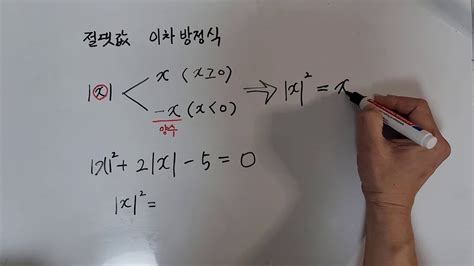 절댓값 이차방정식
|x| < x (x≥0)
-x (x<0) ⇒ |x|² = x
양수
|x|² + 2|x| - 5 = 0
|x|² =